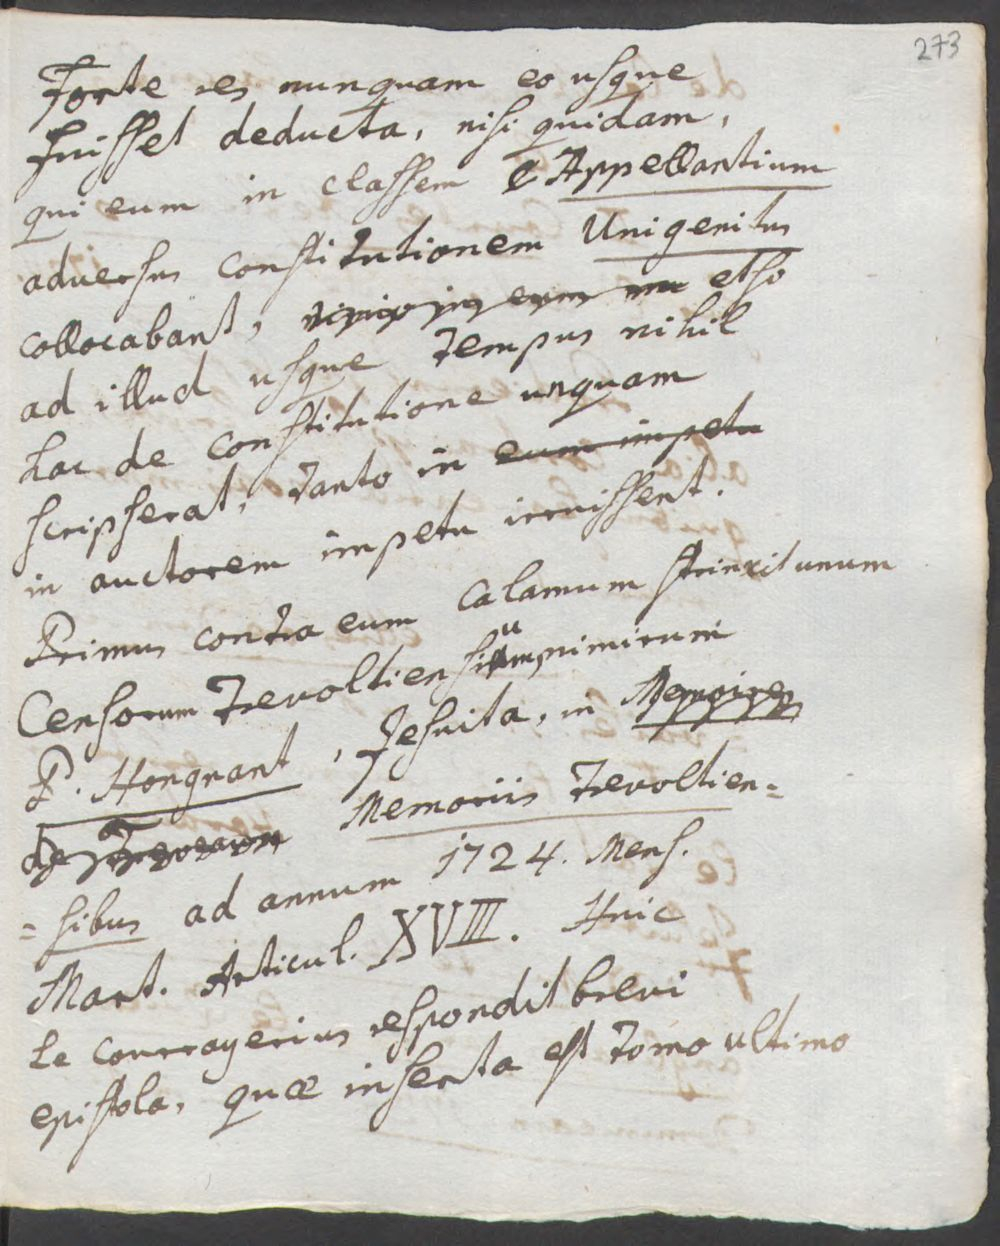 273
Forte res nunquam eo usque
fuisset deducta, nisi quidam,
qui eum in classem Appellantium
adversus constitutionem Unigenitus
collocabant, etso
ad illud usque tempus nihil
hac de constitutione unquam
scripserat, tanto in eum impetu
in auctorem impetu irruissent.
Primus contra eum calamum strinxit unum
Censorum Trevoltiensium, nimirum
P. Hongnant, Jesuita, in Memoires
de Trevoux Memoriis Trevoltien=
=sibus ad annum 1724. Mens.
Mart. Articul. XVIII. Huic
le courrayerius respondit brevi
epistola, quæ inserta est tomo ultimo